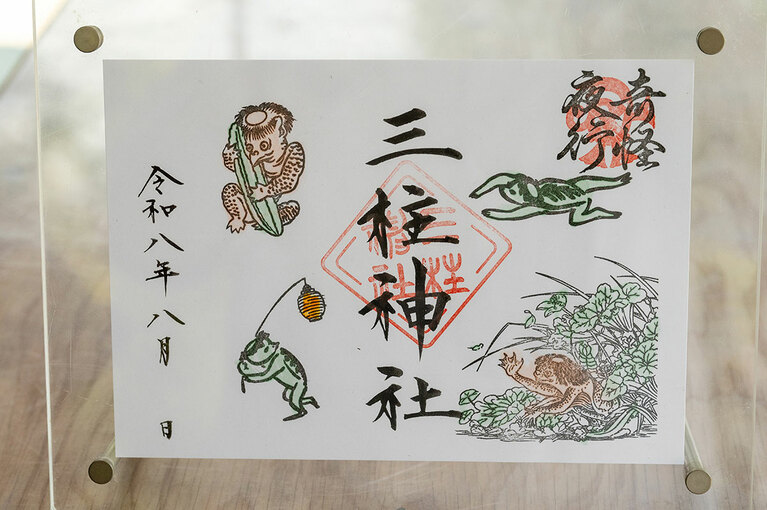 奇怪
夜行
三柱神社
三柱
神社
令和八年八月　日